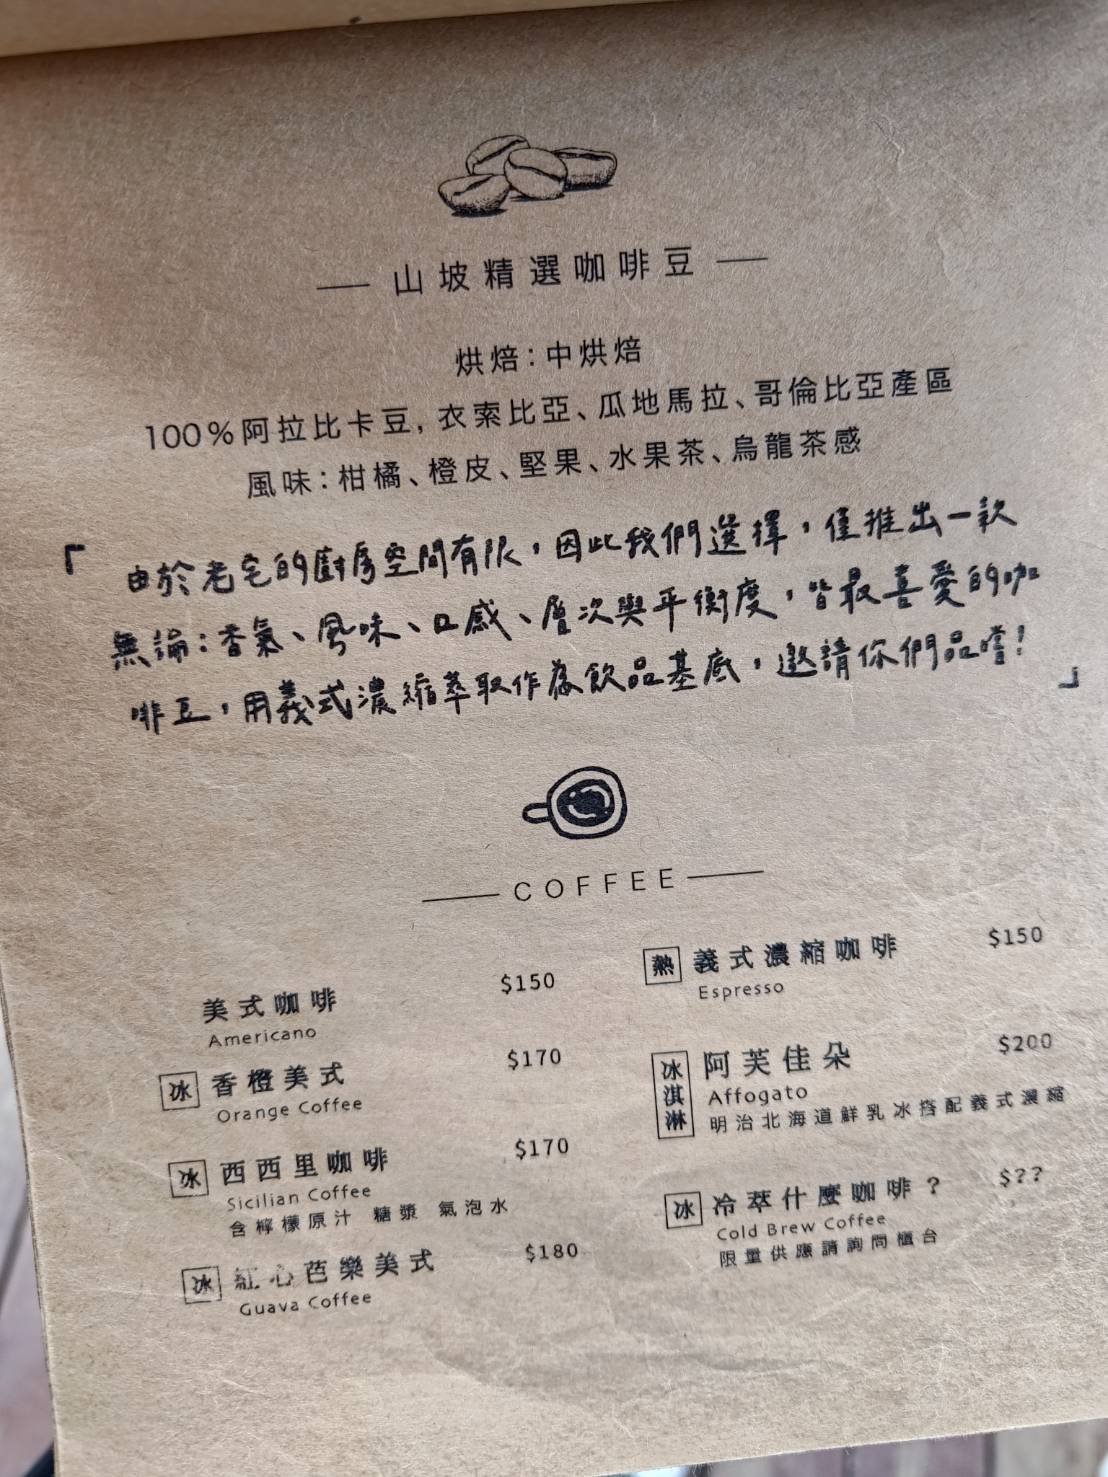 山坡精選咖啡豆
烘焙:中烘焙
100%阿拉比卡豆, 衣索比亞、瓜地馬拉、哥倫比亞產區
風味:柑橘、橙皮、堅果、水果茶、烏龍茶感
「由於老宅的廚房空間有限,因此我們選擇,僅推出一款
無論:香氣、風味、口感、層次與平衡度,皆最喜愛的咖
啡豆,用義式濃縮萃取作為飲品基底,邀請你們品嚐!」
COFFEE
美式咖啡 $150
Americano
冰 香橙美式 $170
Orange Coffee
冰 西西里咖啡 $170
Sicilian Coffee
含檸檬原汁 糖漿 氣泡水
冰 紅心芭樂美式 $180
Guava Coffee
熱 義式濃縮咖啡 $150
Espresso
冰淇淋 阿芙佳朵 $200
Affogato
明治北海道鮮乳冰搭配義式濃縮
冰 冷萃什麼咖啡? $??
Cold Brew Coffee
限量供應請詢問櫃台